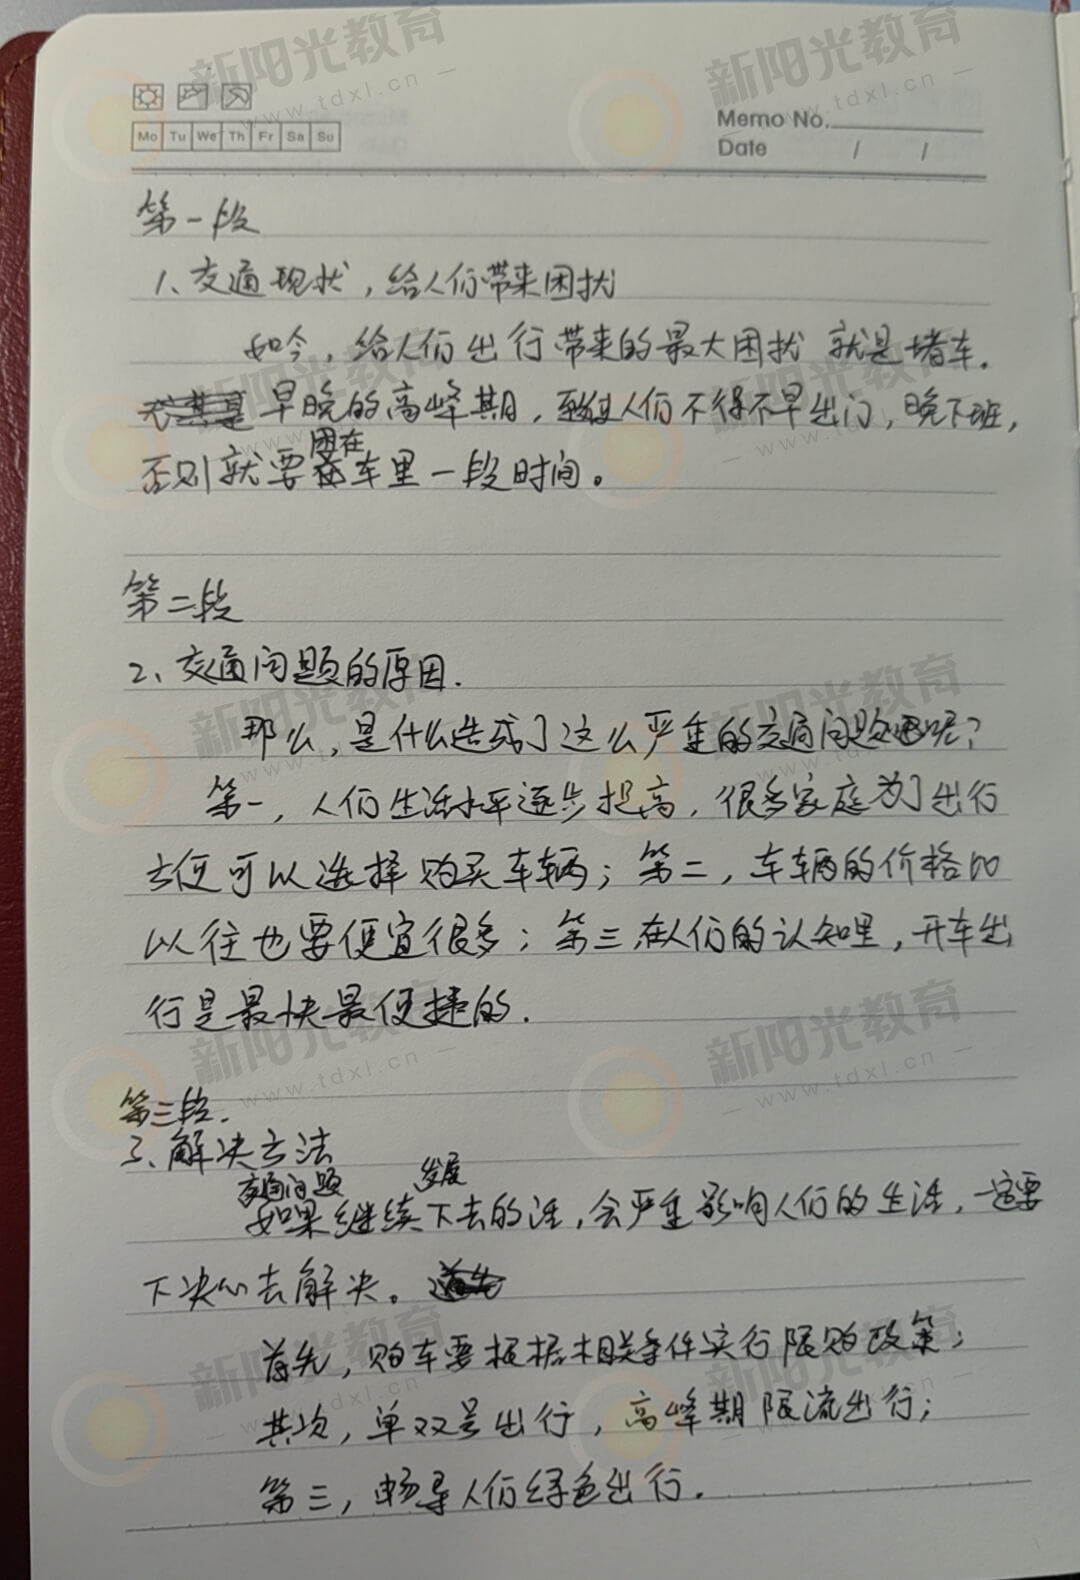 新阳光教育
www.tdxl.cn
新阳光教育
www.tdxl.cn
Mo Tu We Th Fr Sa Su
Memo No.
Date / /
第一段
1、交通现状,给人们带来困扰
如今,给人们出行带来的最大困扰 就是堵车.
早晚的高峰期,致使人们不得不早出门,晚下班,
困在
否则就要车里一段时间。
第二段
2、交通问题的原因.
那么,是什么造成了这么严重的交通问题呢?
第一,人们生活水平逐步提高,很多家庭为了出行
方便可以选择购买车辆;第二,车辆的价格比
以往也要便宜很多;第三在人们的认知里,开车出
行是最快最便捷的.
第三段.
3、解决方法
交通问题 发展
如果继续下去的话,会严重影响人们的生活,一定要
下决心去解决。
首先,购车要根据相关条件实行限购政策;
其次,单双号出行,高峰期限流出行;
第三,畅导人们绿色出行.